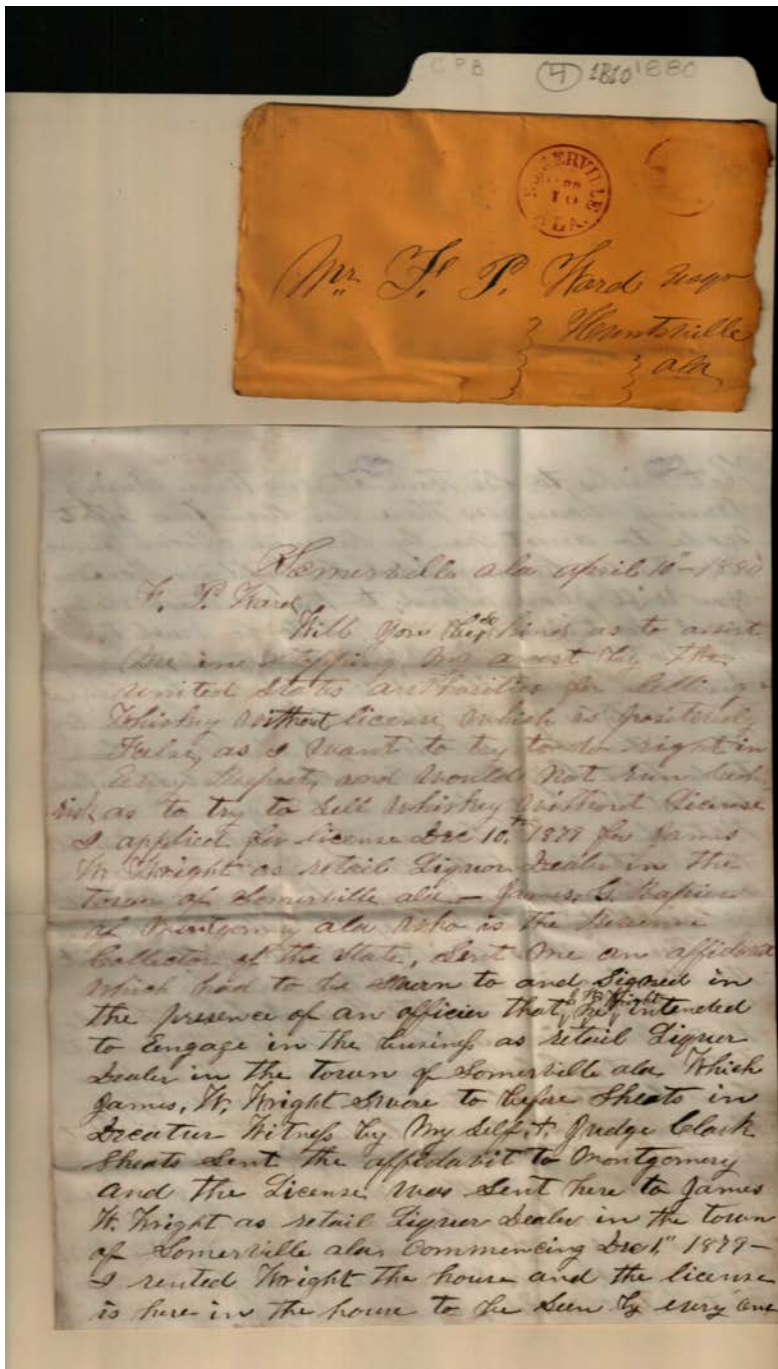 CPB (4) 1810 1880
SOMERVILLE
10
ALA.
Mr. F. P. Ward Esqr
Huntsville
Ala
Somerville ala april 10" - 1880
F. P. Ward
Will you be so kind as to assist
me in stopping my arest by the
united states authorities for selling
Whisky without license which is positively
False, as I want to try to do right in
Every Respect, and would not run such
risk as to try to sell whiskey without License
I applied for license Dec 10th 1879 for James
W. Wright as retail Liquor Dealer in the
town of Somerville ala - James, Rapier
of Montgomery ala who is the Revenue
Collector of the State, sent me an affidavit
which had to be sworn to and signed in
the presence of an officier that he J W Wright intended
to Engage in the business as retail Liquer
Dealer in the town of Somerville ala Which
James, W. Wright swore to before Sheats in
Dicatur Witness by My Self & Judge Clark
Sheats sent the affidabit to Montgomery
and the License was sent here to James
W. Wright as retail Liquer Dealer in the town
of Somerville ala, Commencing Dec 1" 1879 -
I rented Wright the house and the license
is here in the house to be seen by every one